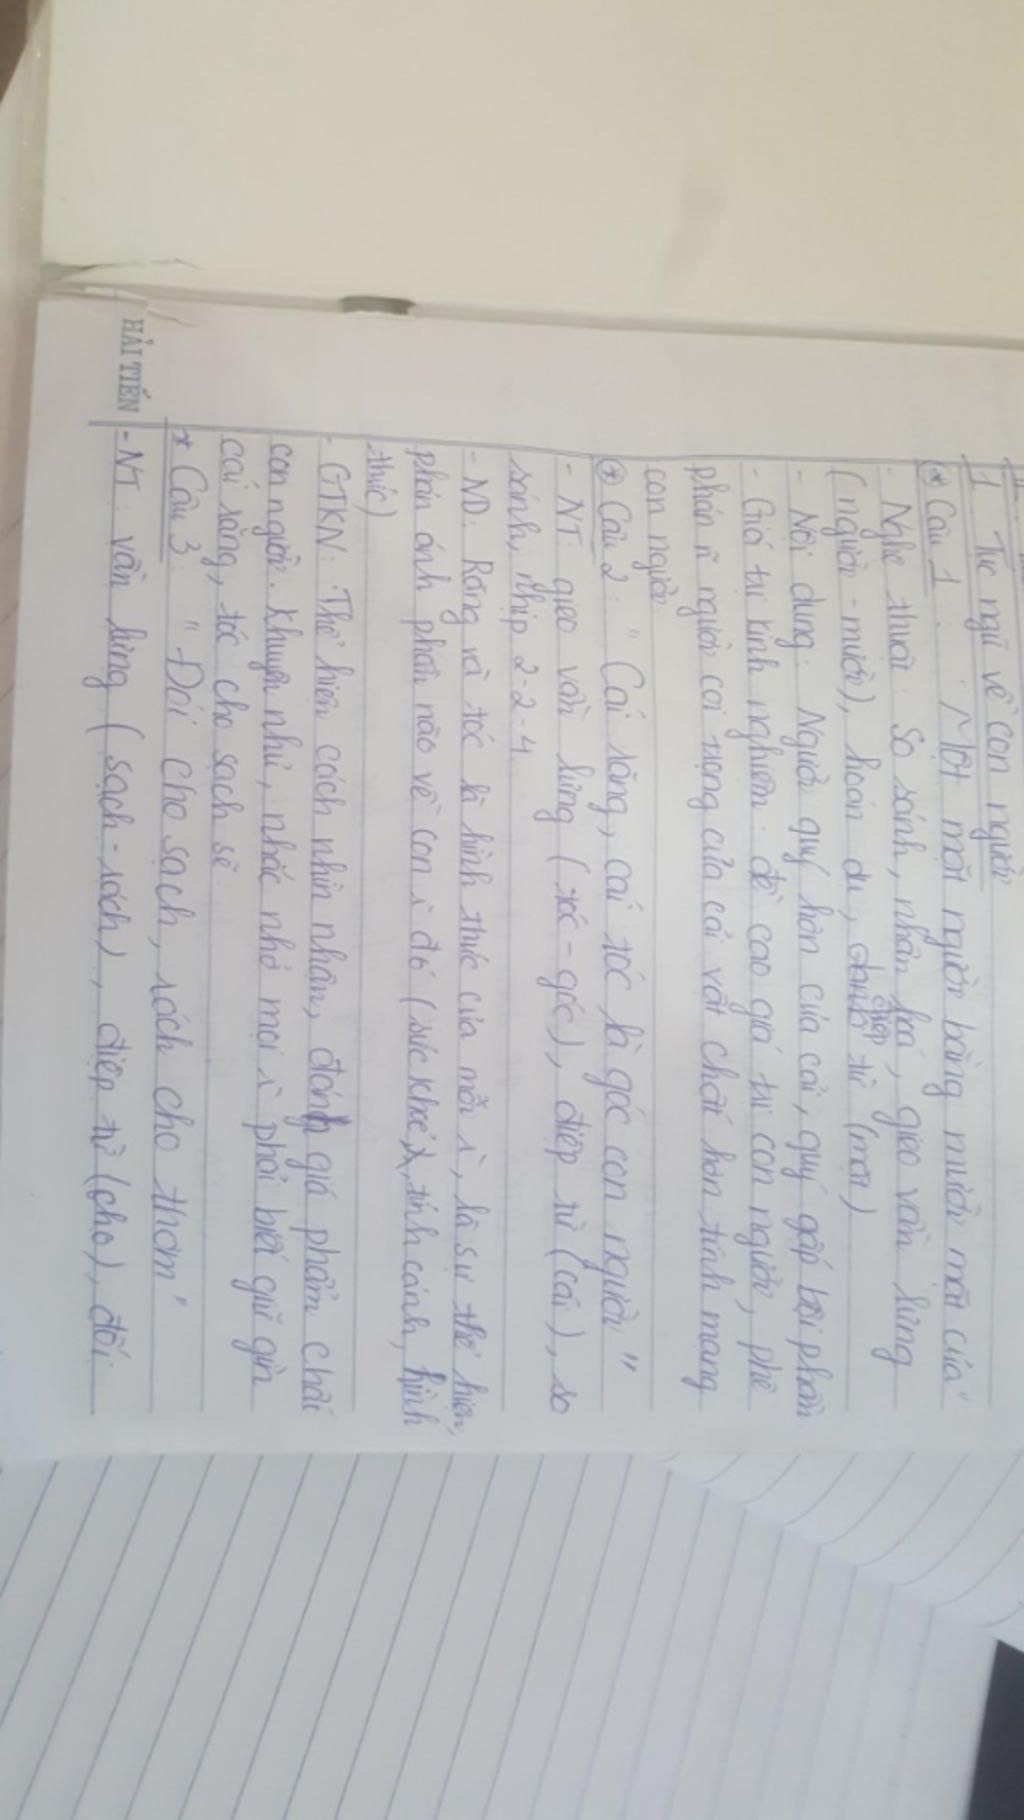 1. Tục ngữ về con người
* Câu 1: "Một mặt người bằng mười mặt của"
- Nghệ thuật: So sánh, nhân hoá, gieo vần lưng
(người - mười), hoán dụ, điệp từ (mặt)
- Nội dung: Người quý hơn của cải, quý gấp bội phần
- Giá trị kinh nghiệm: đề cao giá trị con người, phê
phán n~ người coi trọng của cải vật chất hơn tính mạng
con người
* Câu 2: "Cái răng, cái tóc là góc con người"
- NT: gieo vần lưng (tóc - góc), điệp từ (cái), so
sánh, nhịp 2-2-4.
- ND: Răng và tóc là hình thức của mỗi , là sự thể hiện,
phản ánh phần nào về con đó (sức khoẻ, tính cách, hình
thức)
- GTKN: Thể hiện cách nhìn nhận, đánh giá phẩm chất
con người. Khuyên nhủ, nhắc nhở mọi phải biết giữ gìn
cái răng, tóc cho sạch sẽ.
* Câu 3: "Đói cho sạch, rách cho thơm"
HẢI TIẾN
- NT: vần lưng (sạch - rách), điệp từ (cho), đối